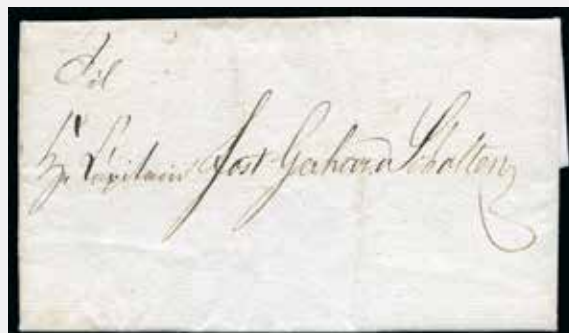 Til
Hr Capitain Jost Gerhard Scholten